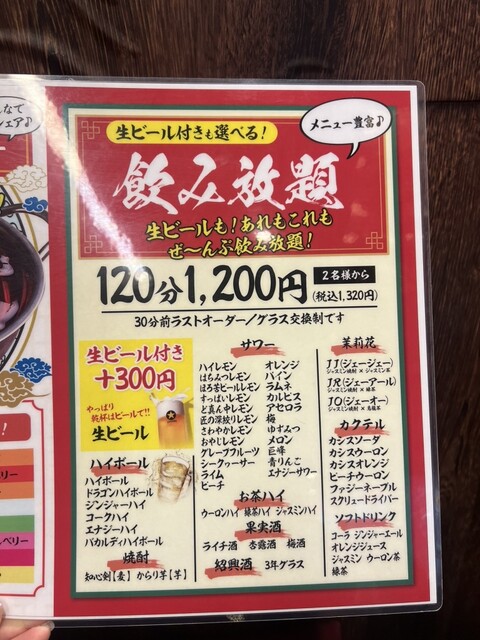 んなで
シェア♪
メニュー豊富♪
生ビール付きも選べる!
飲み放題
生ビールも!あれもこれも
ぜ〜んぶ飲み放題!
120分1,200円
2名様から
(税込1,320円)
30分前ラストオーダー/グラス交換制です
生ビール付き
+300円
やっぱり
乾杯はビールで!!
生ビール
ハイボール
ハイボール
ドラゴンハイボール
ジンジャーハイ
コークハイ
エナジーハイ
バカルディハイボール
焼酎
知心剣【麦】 からり芋【芋】
サワー
ハイレモン
はちみつレモン
ほろ苦ビールレモン
すっぱいレモン
ど真ん中レモン
匠の深絞りレモン
さわやかレモン
おやじレモン
グレープフルーツ
シークヮーサー
ライム
ピーチ
オレンジ
パイン
ラムネ
カルピス
アセロラ
梅
ゆずみつ
メロン
巨峰
青りんご
エナジーサワー
お茶ハイ
ウーロンハイ 緑茶ハイ ジャスミンハイ
果実酒
ライチ酒 杏露酒 梅酒
紹興酒 3年グラス
茉莉花
JJ(ジェージェー)
ジャスミン焼酎 × ジャスミン茶
JR(ジェーアール)
ジャスミン焼酎 × 緑茶
JO(ジェーオー)
ジャスミン焼酎 × 烏龍茶
カクテル
カシスソーダ
カシスウーロン
カシスオレンジ
ピーチウーロン
ファジーネーブル
スクリュードライバー
ソフトドリンク
コーラ ジンジャーエール
オレンジジュース
ジャスミン ウーロン茶
緑茶